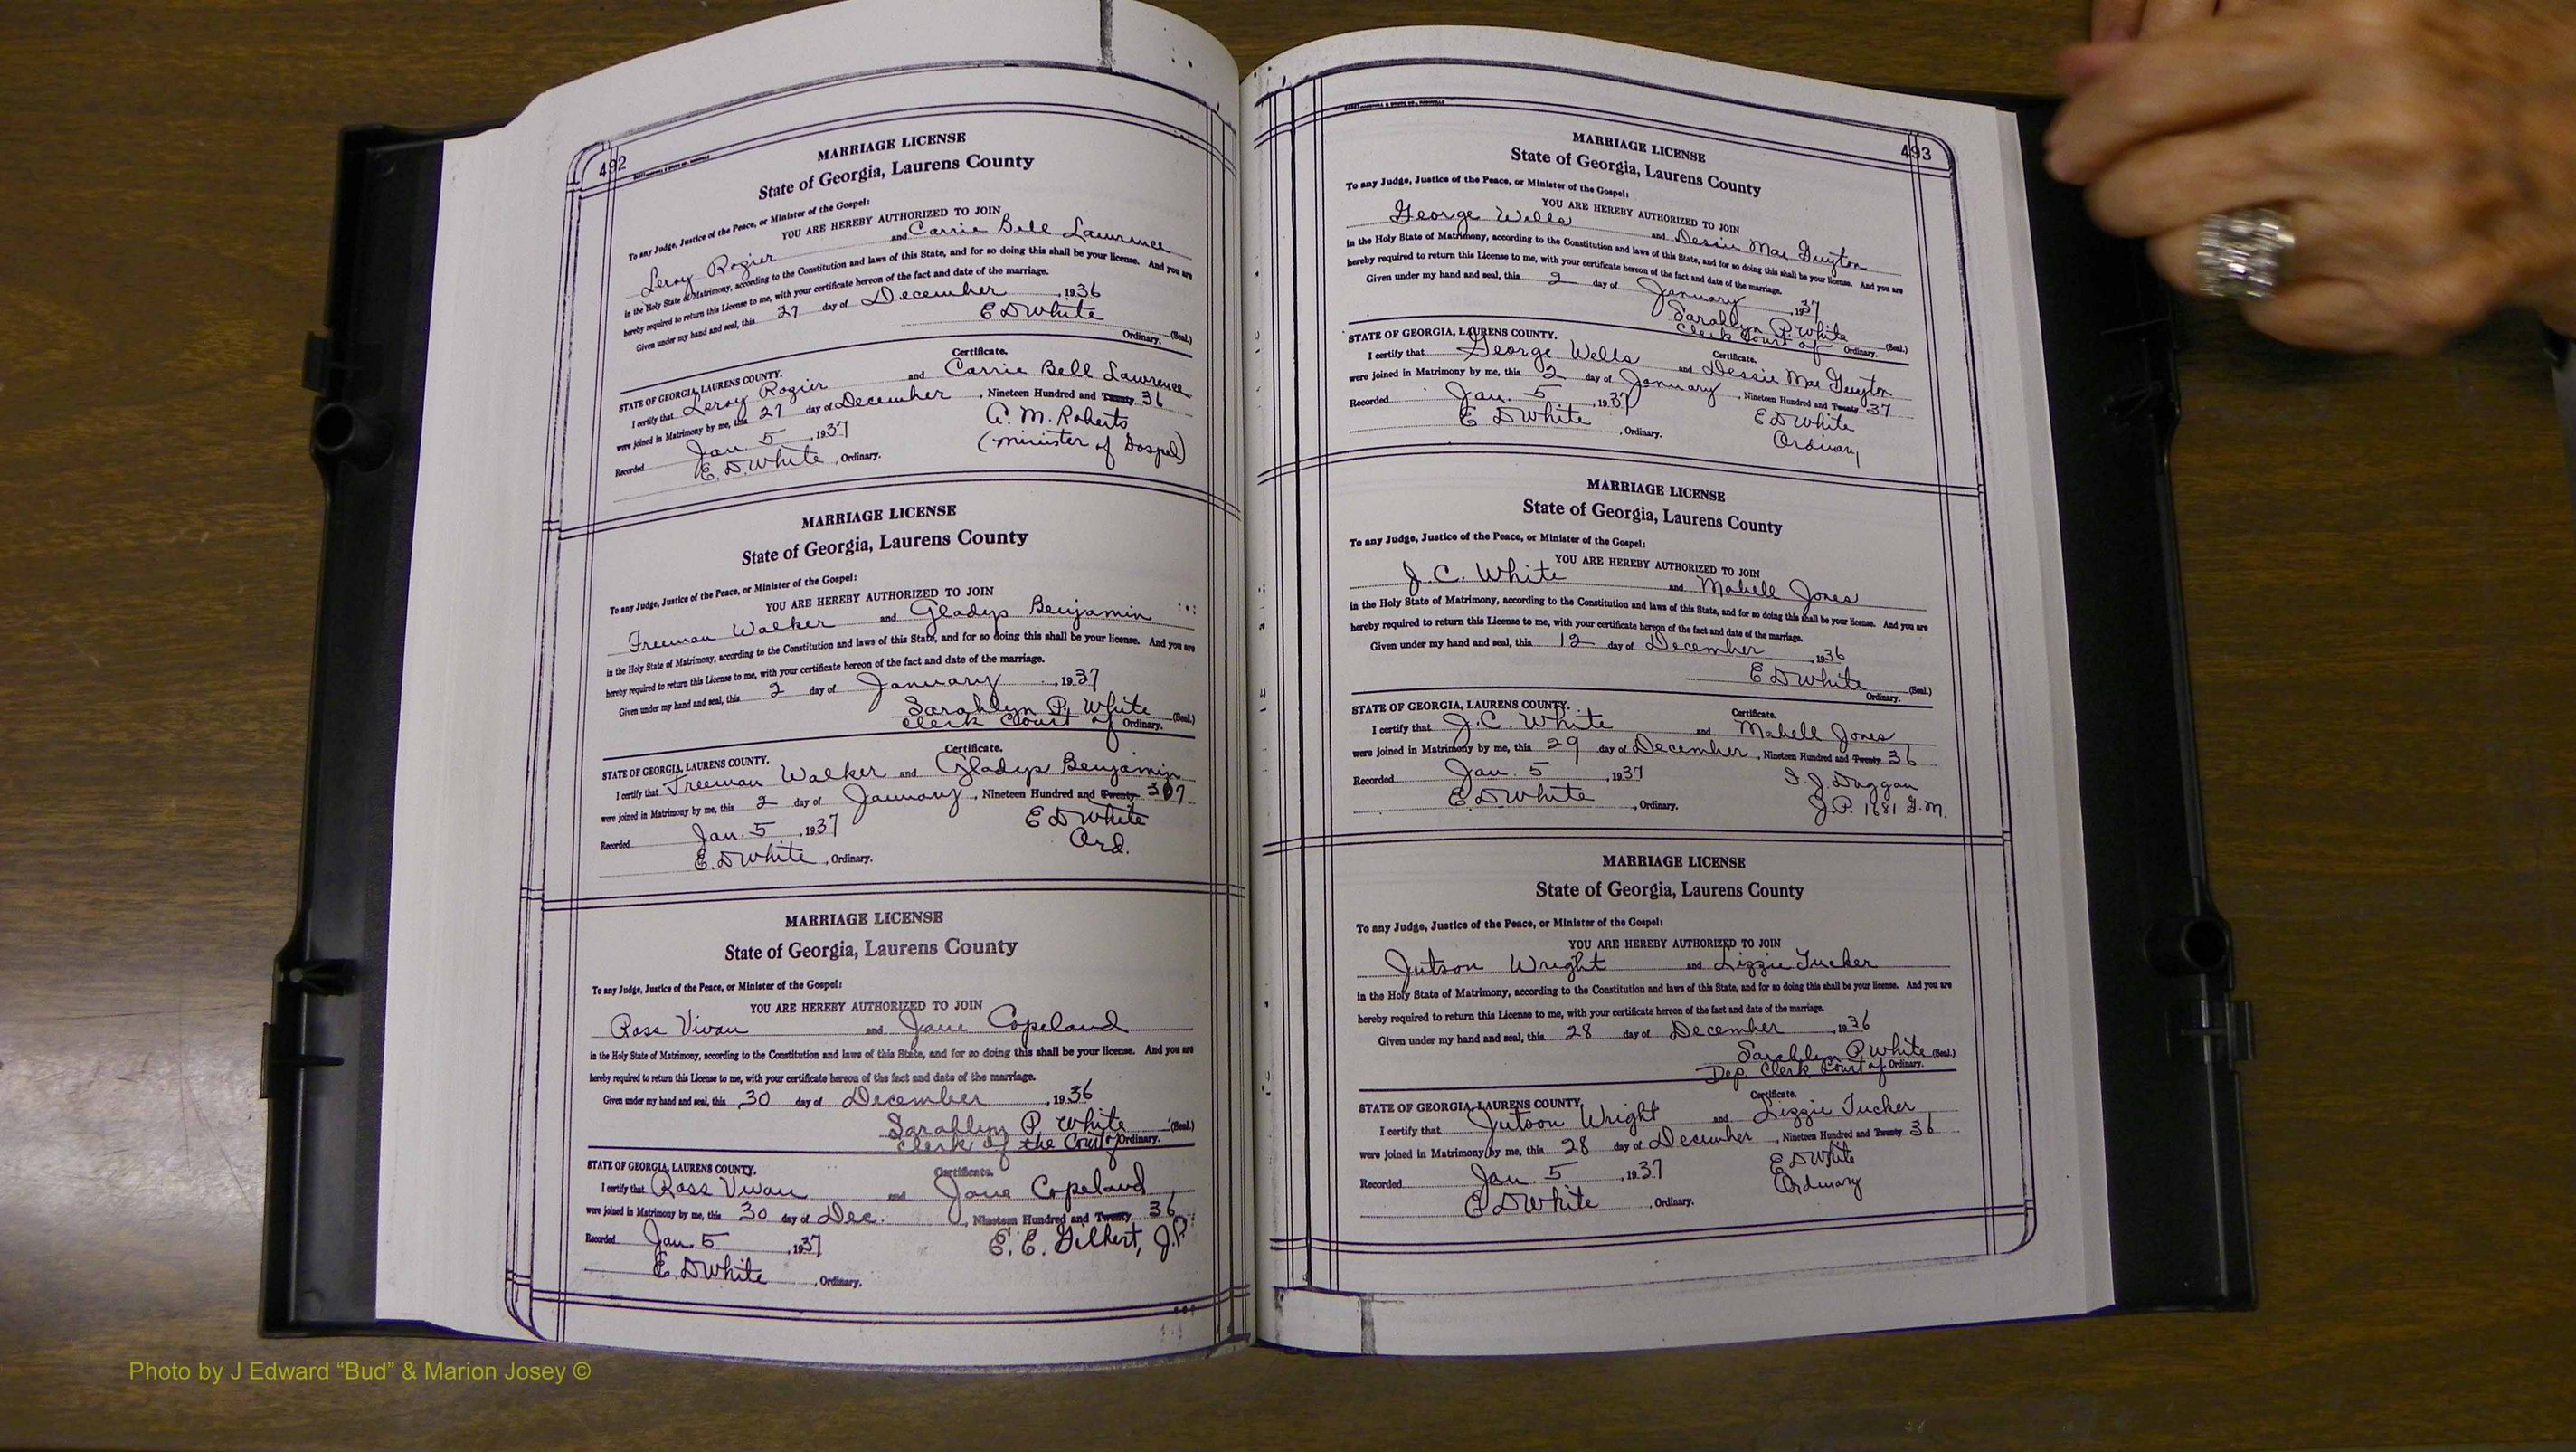 492
MARRIAGE LICENSE
State of Georgia, Laurens County
To any Judge, Justice of the Peace, or Minister of the Gospel:
YOU ARE HEREBY AUTHORIZED TO JOIN
Leroy Rozier and Carrie Bell Lawrence
in the Holy State of Matrimony, according to the Constitution and laws of this State, and for so doing this shall be your license. And you are
hereby required to return this License to me, with your certificate hereon of the fact and date of the marriage.
Given under my hand and seal, this 27 day of December, 1936
E D White
Ordinary. (Seal.)
Certificate.
STATE OF GEORGIA, LAURENS COUNTY.
I certify that Leroy Rozier and Carrie Bell Lawrence
were joined in Matrimony by me, this 27 day of December, Nineteen Hundred and Twenty 36
Recorded Jan. 5, 1937 A. M. Roberts
E. D. White, Ordinary. (Minister of Gospel)
MARRIAGE LICENSE
State of Georgia, Laurens County
To any Judge, Justice of the Peace, or Minister of the Gospel:
YOU ARE HEREBY AUTHORIZED TO JOIN
Freeman Walker and Gladys Benjamin
in the Holy State of Matrimony, according to the Constitution and laws of this State, and for so doing this shall be your license. And you are
hereby required to return this License to me, with your certificate hereon of the fact and date of the marriage.
Given under my hand and seal, this 2 day of January, 1937
Sarahlyn P. White
Clerk Court of Ordinary. (Seal.)
Certificate.
STATE OF GEORGIA, LAURENS COUNTY.
I certify that Freeman Walker and Gladys Benjamin
were joined in Matrimony by me, this 2 day of January, Nineteen Hundred and Twenty 37
Recorded Jan. 5, 1937 E D White
E. D White, Ordinary. Ord.
MARRIAGE LICENSE
State of Georgia, Laurens County
To any Judge, Justice of the Peace, or Minister of the Gospel:
YOU ARE HEREBY AUTHORIZED TO JOIN
Ross Vivan and Jane Copeland
in the Holy State of Matrimony, according to the Constitution and laws of this State, and for so doing this shall be your license. And you are
hereby required to return this License to me, with your certificate hereon of the fact and date of the marriage.
Given under my hand and seal, this 30 day of December, 1936
Sarahlyn P. White (Seal.)
Clerk of the Court of Ordinary.
Certificate.
STATE OF GEORGIA, LAURENS COUNTY.
I certify that Ross Vivan and Jane Copeland
were joined in Matrimony by me, this 30 day of Dec., Nineteen Hundred and Twenty 36
Recorded Jan. 5, 1937 E. E. Gilbert, J.P.
E. D White, Ordinary.
493
MARRIAGE LICENSE
State of Georgia, Laurens County
To any Judge, Justice of the Peace, or Minister of the Gospel:
YOU ARE HEREBY AUTHORIZED TO JOIN
George Wells and Dessie Mae Guyton
in the Holy State of Matrimony, according to the Constitution and laws of this State, and for so doing this shall be your license. And you are
hereby required to return this License to me, with your certificate hereon of the fact and date of the marriage.
Given under my hand and seal, this 2 day of January, 1937
Sarahlyn P. White
Clerk Court of Ordinary. (Seal.)
STATE OF GEORGIA, LAURENS COUNTY.
Certificate.
I certify that George Wells and Dessie Mae Guyton
were joined in Matrimony by me, this 2 day of January, Nineteen Hundred and Twenty 37
Recorded Jan. 5, 1937 E D White
E D White, Ordinary. Ordinary
MARRIAGE LICENSE
State of Georgia, Laurens County
To any Judge, Justice of the Peace, or Minister of the Gospel:
YOU ARE HEREBY AUTHORIZED TO JOIN
J. C. White and Mabell Jones
in the Holy State of Matrimony, according to the Constitution and laws of this State, and for so doing this shall be your license. And you are
hereby required to return this License to me, with your certificate hereon of the fact and date of the marriage.
Given under my hand and seal, this 12 day of December, 1936
E D White (Seal.)
Ordinary.
STATE OF GEORGIA, LAURENS COUNTY.
Certificate.
I certify that J. C. White and Mabell Jones
were joined in Matrimony by me, this 29 day of December, Nineteen Hundred and Twenty 36
Recorded Jan. 5, 1937 I. J. Duggan
E. D White, Ordinary. J.P. 1681 G.M.
MARRIAGE LICENSE
State of Georgia, Laurens County
To any Judge, Justice of the Peace, or Minister of the Gospel:
YOU ARE HEREBY AUTHORIZED TO JOIN
Jutson Wright and Lizzie Tucker
in the Holy State of Matrimony, according to the Constitution and laws of this State, and for so doing this shall be your license. And you are
hereby required to return this License to me, with your certificate hereon of the fact and date of the marriage.
Given under my hand and seal, this 28 day of December, 1936
Sarahlyn P. White (Seal.)
Dep. Clerk Court of Ordinary.
Certificate.
STATE OF GEORGIA, LAURENS COUNTY,
I certify that Jutson Wright and Lizzie Tucker
were joined in Matrimony by me, this 28 day of December, Nineteen Hundred and Twenty 36
Recorded Jan. 5, 1937 E D White
E D White, Ordinary. Ordinary
Photo by J Edward “Bud” & Marion Josey ©